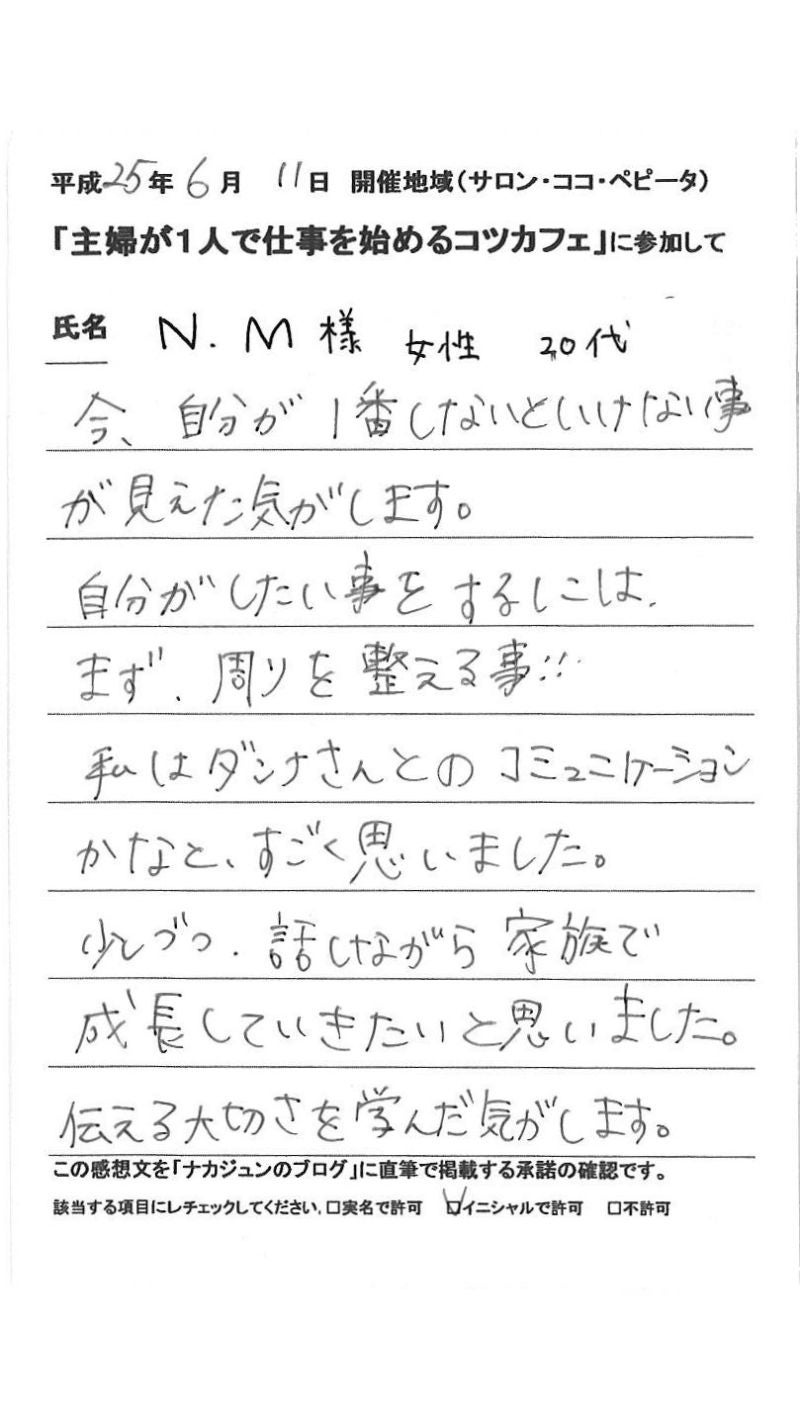 平成25年6月11日 開催地域(サロン・ココ・ペピータ)
「主婦が1人で仕事を始めるコツカフェ」に参加して
氏名 N.M様 女性 20代
今、自分が1番しないといけない事
が見えた気がします。
自分がしたい事をするには、
まず、周りを整える事!!
私はダンナさんとのコミュニケーション
かなと、すごく思いました。
少しづつ、話しながら家族で
成長していきたいと思いました。
伝える大切さを学んだ気がします。
この感想文を「ナカジュンのブログ」に直筆で掲載する承諾の確認です。
該当する項目にレチェックしてください。□実名で許可 ☑イニシャルで許可 □不許可